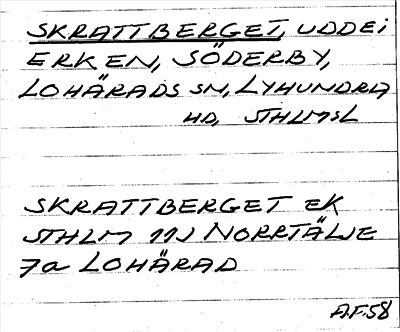 SKRATTBERGET, UDDE i
ERKEN, SÖDERBY,
LOHÄRADS SN, LYHUNDRA
HD, STHLMSL
SKRATTBERGET EK
STHLM 11J NORRTÄLJE
7a LOHÄRAD
A.F.58